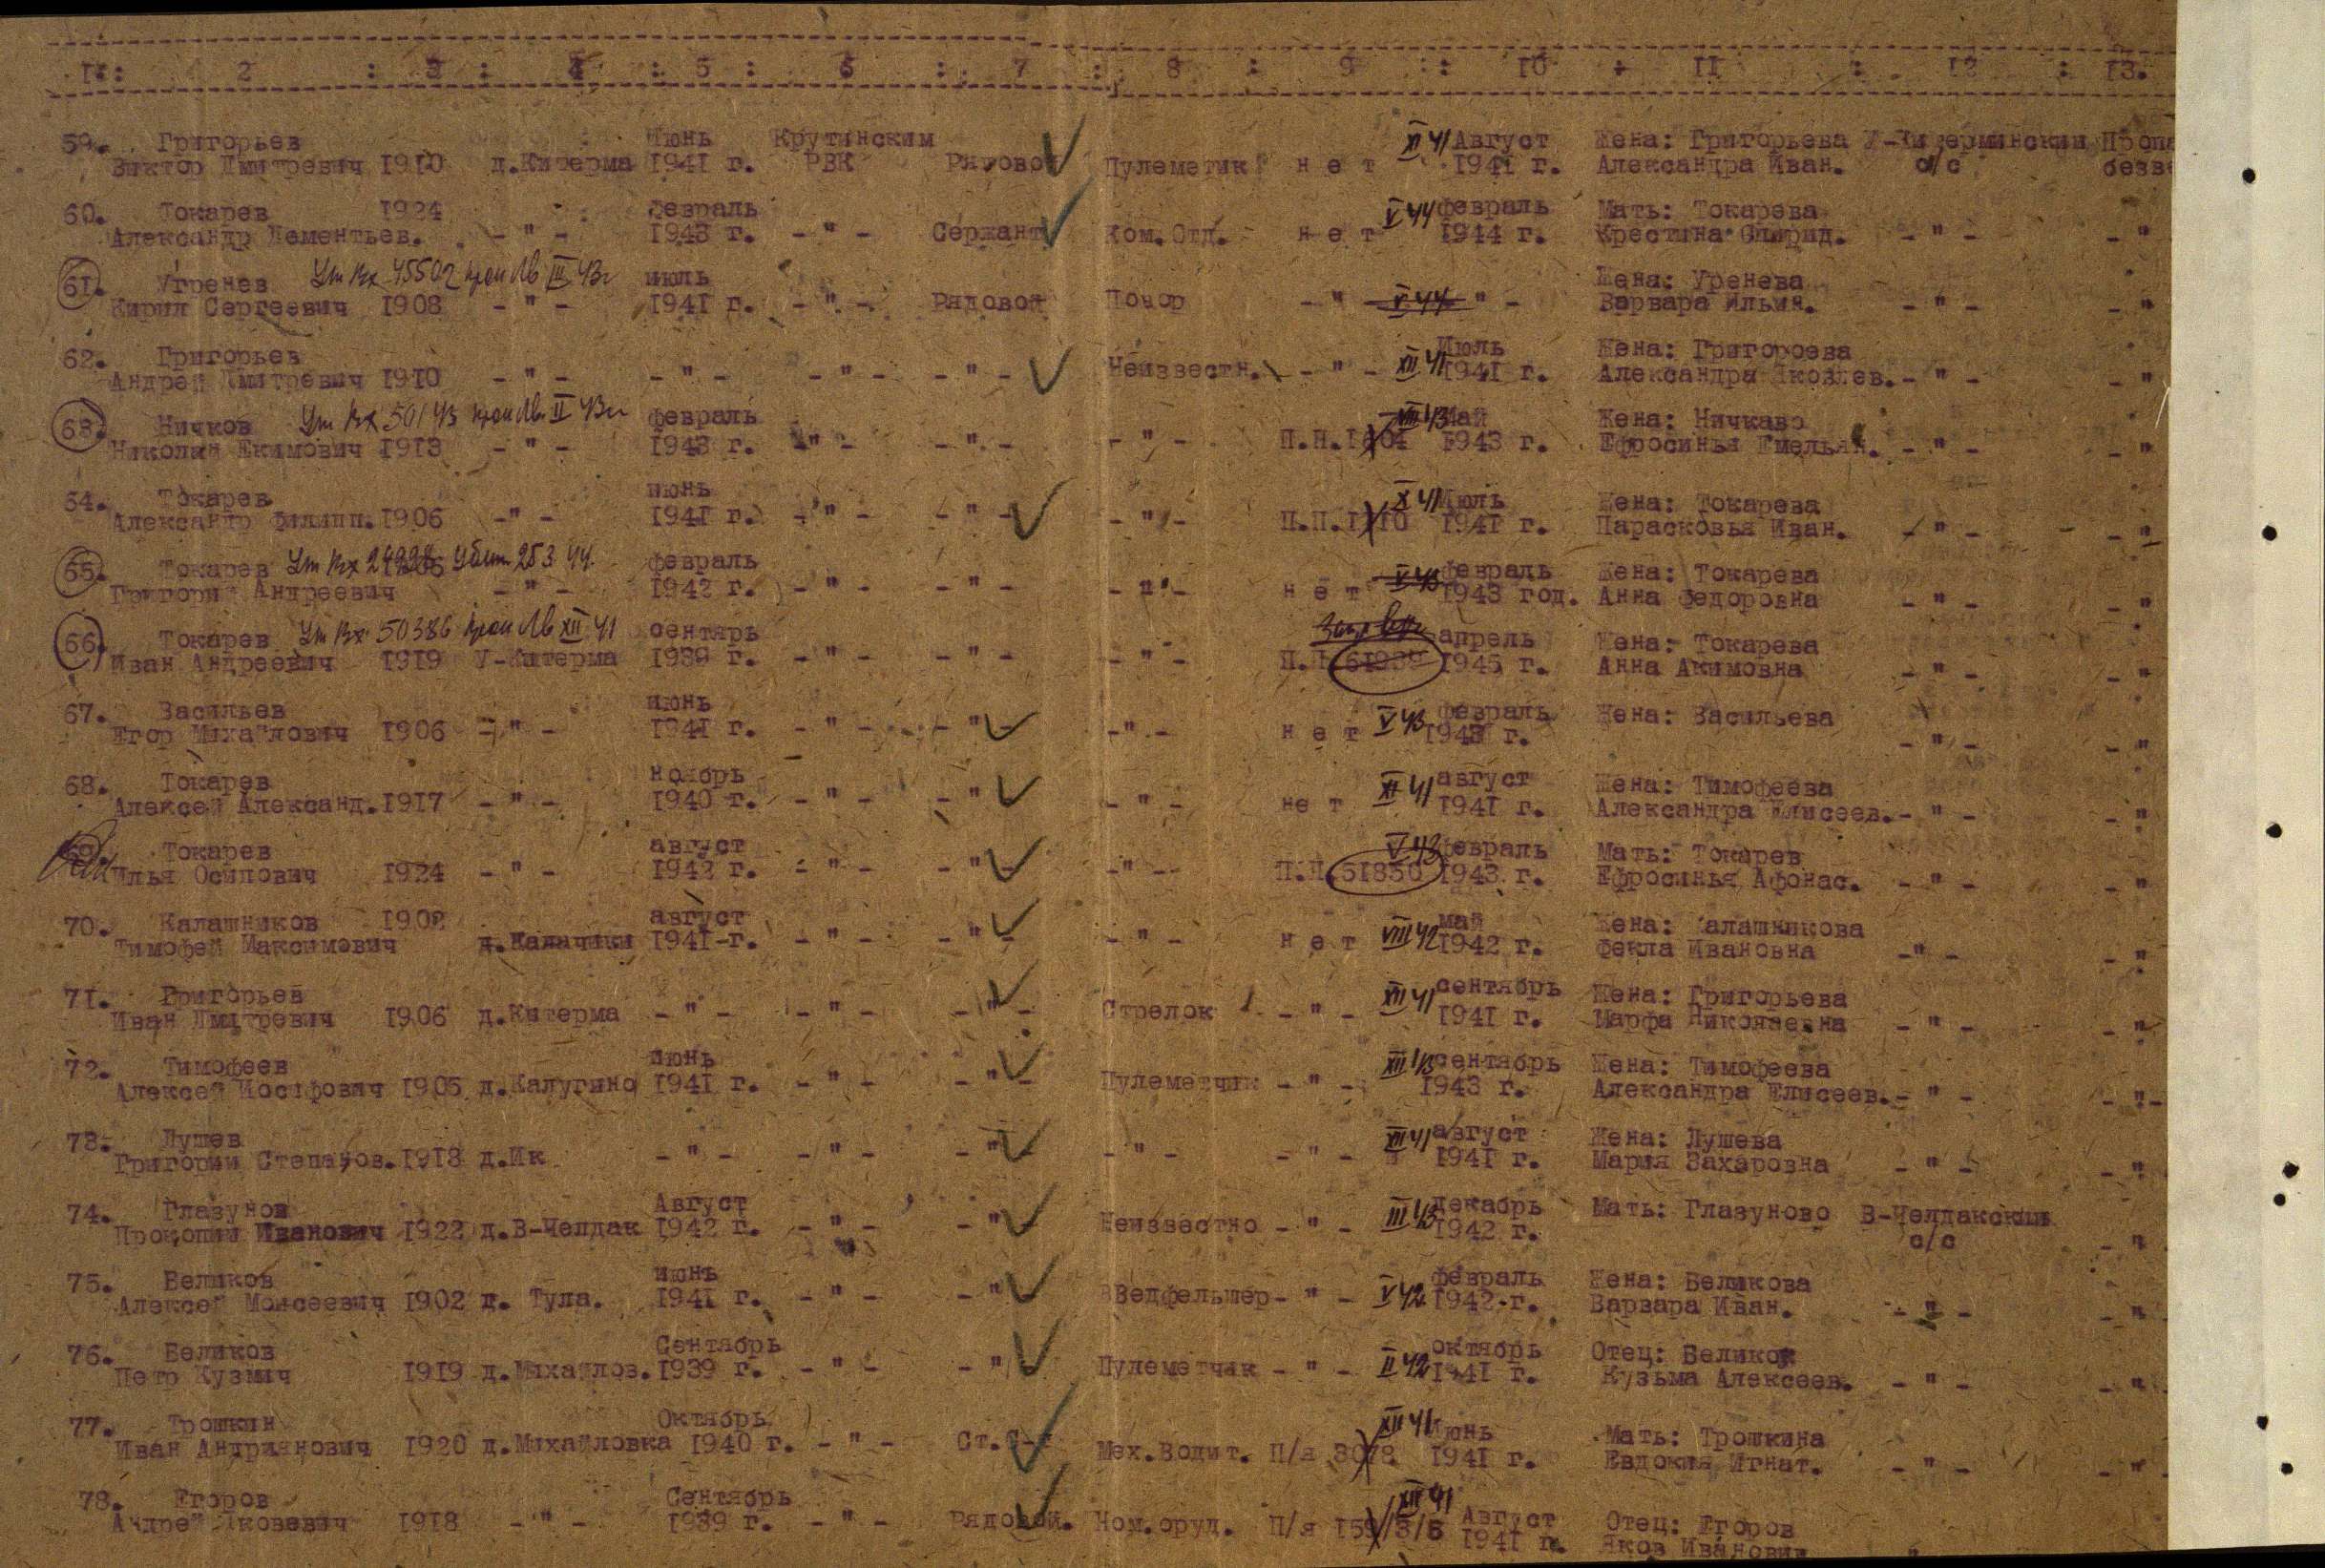 1 : 2 : 3 : 4 : 5 : 6 : 7 : 8 : 9 : 10 : 11 : 12 : 13.
59. Григорьев Июнь Крутинским XI 41 Август Жена: Григорьева У-Китерминский Пропа
Виктор Дмитревич 1910 д.Китерма 1941 г. РВК Рядовой Пулеметик н е т 1941 г. Александра Иван. с/с безве
60. Токарев 1924 февраль V 44 февраль Мать: Токарева
Александр Дементьев. - " - 1943 г. - " - Сержант Ком.Отд. н е т 1944 г. Крестина Спирид. - " - - "
61. Угренев Ум Вх 45502 III 43г июль Жена: Уренева
Кирил Сергеевич 1908 - " - 1941 г. - " - Рядовой Понор - " - V 44 " - Варвара Ильин. - " - - "
62. Григорьев Июль Жена: Григороева
Андрей Дмитревич 1910 - " - - " - - " - - " - Неизвестн. - " - XII 41 1941 г. Александра Яковлев. - " - - "
63. Ничков Ум Вх 50143 II 43г февраль VIII 43 Май Жена: Ничкаво
Николай Екимович 1913 - " - 1943 г. - " - - " - - " - 1943 г. Ефросинья Емельян. - " - - "
64. Токарев июнь X 41 Июль Жена: Токарева
Александр Филипп. 1906 - " - 1941 г. - " - - " - - " - П.П. 1941 г. Парасковья Иван. - " - - "
65. Токарев Ум Вх 44 февраль V 43 февраль Жена: Токарева
Григори Андреевич - " - 1942 г. - " - - " - - " - н е т 1943 год. Анна Федоровна - " - - "
66. Токарев Ум Вх 50386 XII 41 сентярь апрель Жена: Токарева
Иван Андреевич 1919 У-Китерма 1939 г. - " - - " - - " - П.П. 61939 1945 г. Анна Акимовна - " - - "
67. Васильев июнь февраль Жена: Васильева
Егор Михайлович 1906 - " - 1941 г. - " - - " - - " - н е т V 43 1943 г. - " - - "
68. Токарев ноябрь август Жена: Тимофеева
Алексей Александ. 1917 - " - 1940 г. - " - - " - - " - не т XII 41 1941 г. Александра Елисеев. - " - - "
Токарев август V 43 февраль Мать: Токарев
Илья Осипович 1924 - " - 1942 г. - " - - " - - " - П.П. 51850 1943 г. Ефросинья Афонас. - " - - "
70. Калашников 1902 август май Жена: Калашникова
Тимофей Максимович д.Калачики 1941-г. - " - - " - - " - н е т VIII 42 1942 г. Фекла Ивановна - " - - "
71. Григорьев сентябрь Жена: Григорьева
Иван Дмитревич 1906 д.Китерма - " - - " - - " - Стрелок - " - XII 41 1941 г. Марфа Николаевна - " - - "
72. Тимофеев июнь сентябрь Жена: Тимофеева
Алексей Иосифович 1905 д.Калугино 1941 г. - " - - " - Пулеметчик - " - XII 43 1943 г. Александра Елисеев. - " - - " -
73. Лушев август Жена: Лушева
Григории Степанов. 1913 д.Ик - " - - " - - " - - " - - " - XII 41 1941 г. Мария Захаровна - " - - "
74. Глазунов Август декабрь Мать: Глазуново В-Челдакский
Прокопии Иванович 1922 д.В-Челдак 1942 г. - " - - " - Неизвестно - " - III 43 1942 г. с/с - "
75. Беликов июнь февраль Жена: Беликова
Алексей Моисеевич 1902 д. Тула. 1941 г. - " - - " - Ведфельшер - " - V 42 1942-г. Варвара Иван. - " - - "
76. Беликов Сентябрь октябрь Отец: Беликов
Петр Кузмич 1919 д.Михайлов. 1939 г. - " - - " Пулеметчик - " - II 42 1941 г. Кузьма Алексеев. - " - - "
77. Трошкин Октябрь XII 41 Июнь Мать: Трошкина
Иван Андриянович 1920 д.Михайловка 1940 г. - " - Мех.Водит. П/я 3078 1941 г. Евдокия Игнат. - " - - "
78. Егоров Сентябрь XII 41 Август Отец: Егоров
Андрей Яковевич 1918 - " - 1939 г. - " - Рядовой. Ном.оруд. П/я 1941 г. Яков Иванович